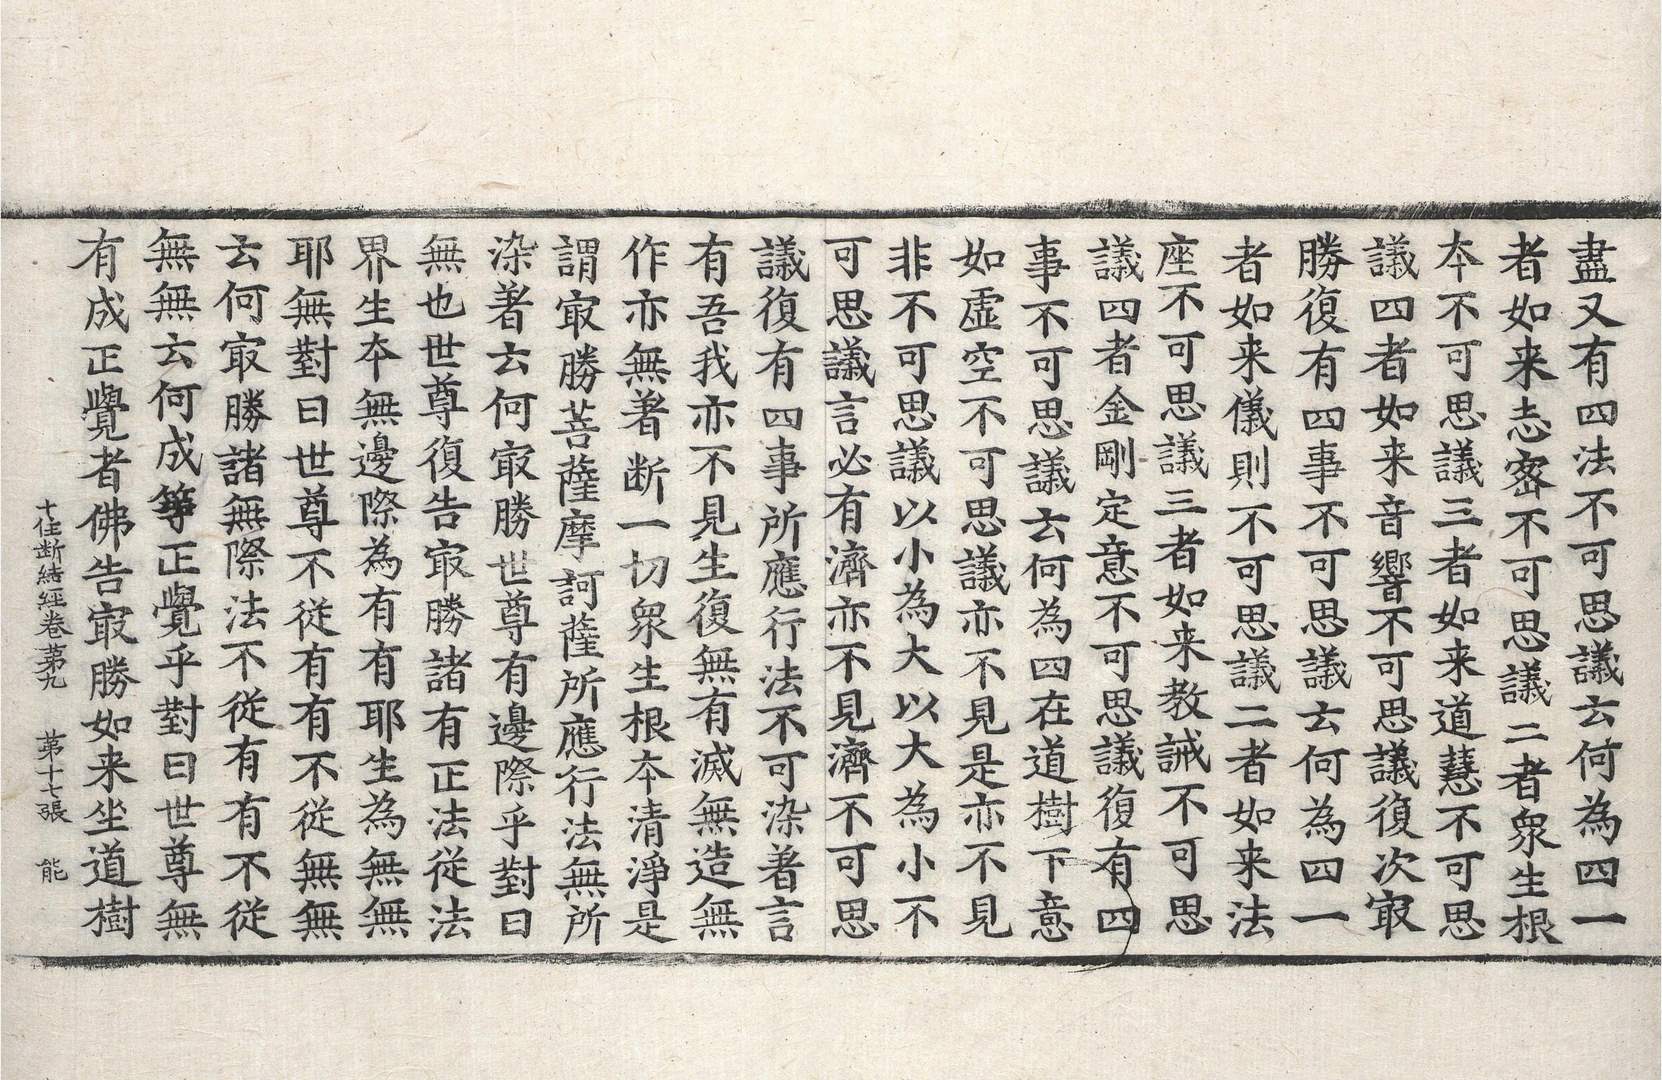 盡又有四法不可思議云何為四一
者如来志密不可思議二者衆生根
夲不可思議三者如来道慧不可思
議四者如来音響不可思議復次㝡
勝復有四事不可思議云何為四一
者如来儀則不可思議二者如来法
座不可思議三者如来教誡不可思
議四者金剛定意不可思議復有四
事不可思議云何為四在道樹下意
如虛空不可思議亦不見是亦不見
非不可思議以小為大以大為小不
可思議言必有濟亦不見濟不可思
議復有四事所應行法不可染著言
有吾我亦不見生復無有滅無造無
作亦無著断一切衆生根夲清淨是
謂㝡勝菩薩摩訶薩所應行法無所
染著云何㝡勝世尊有邊際乎對曰
無也世尊復告㝡勝諸有正法從法
界生夲無邊際為有有耶生為無無
耶無對曰世尊不從有有不從無無
云何㝡勝諸無際法不從有有不從
無無云何成等正覺乎對曰世尊無
有成正覺者佛告㝡勝如来坐道樹
十住断結經卷第九　第十七張　能